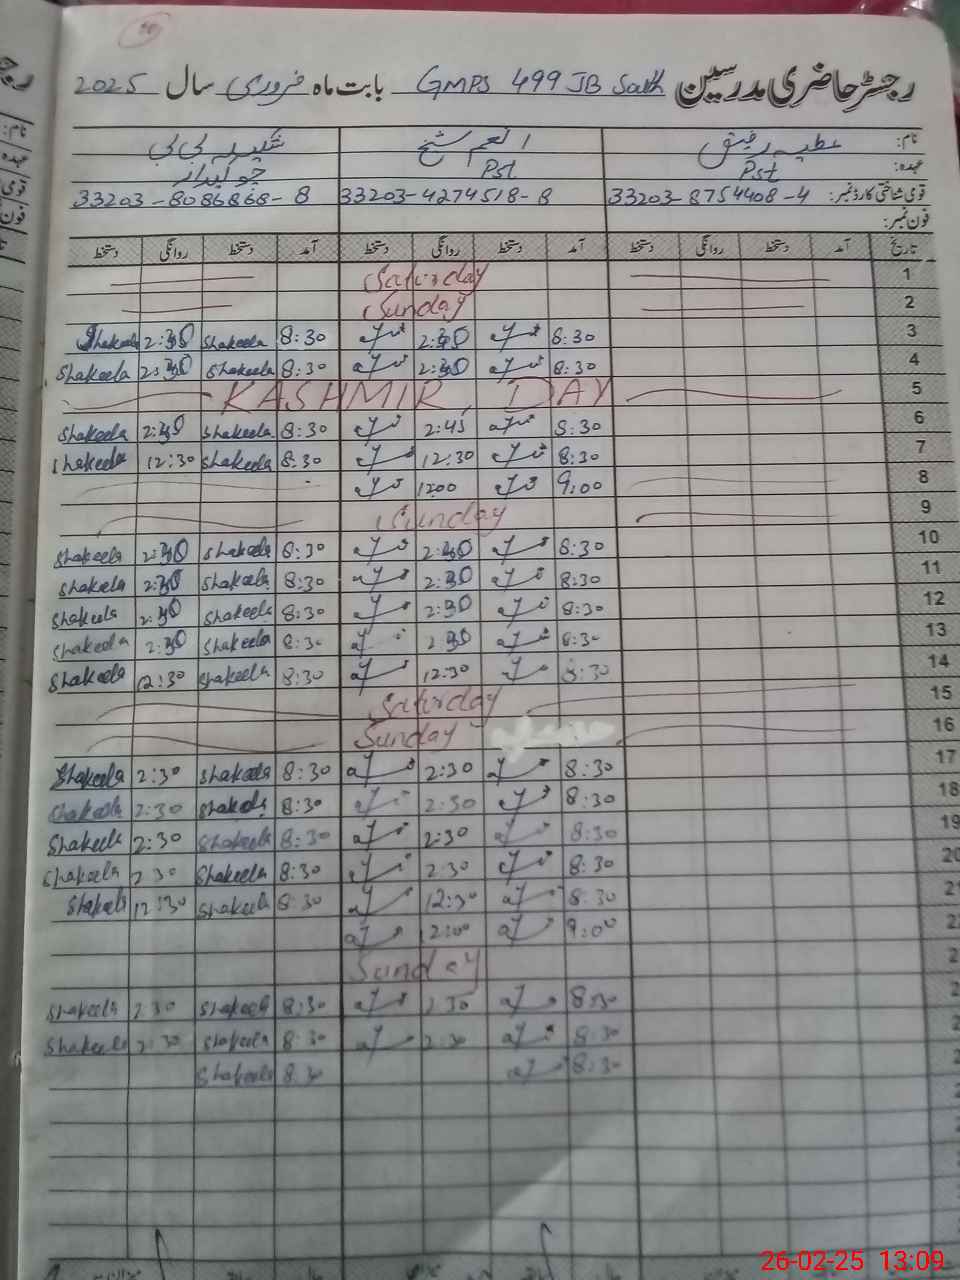 رجسٹر حاضری مدرسین GMPS 499 JB Saith بابت ماہ فروری سال 2025
نام: عطیہ رفیق انعم شیخ شکیلہ بی بی
عہدہ: Pst Pst چوکیدار
قومی شناختی کارڈ نمبر: 33203-8754408-4 33203-4274518-8 33203-8086868-8
فون نمبر:
تاریخ آمد دستخط روانگی دستخط آمد دستخط روانگی دستخط آمد دستخط روانگی دستخط
Saturday 1
Sunday 2
Shakeela 2:30 Shakeela 8:30 2:30 8:30 3
Shakeela 2:30 Shakeela 8:30 2:30 8:30 4
KASHMIR DAY 5
Shakeela 2:30 Shakeela 8:30 2:45 8:30 6
Shakeela 12:30 Shakeela 8:30 12:30 8:30 7
1:00 9:00 8
Sunday 9
Shakeela 2:30 Shakeela 8:30 2:30 8:30 10
Shakeela 2:30 Shakeela 8:30 2:30 8:30 11
Shakeela 2:30 Shakeela 8:30 2:30 8:30 12
Shakeela 2:30 Shakeela 8:30 2:30 8:30 13
Shakeela 12:30 Shakeela 8:30 12:30 8:30 14
Saturday 15
Sunday 16
Shakeela 2:30 Shakeela 8:30 2:30 8:30 17
Shakeela 2:30 Shakeela 8:30 2:30 8:30 18
Shakeela 2:30 Shakeela 8:30 2:30 8:30 19
Shakeela 2:30 Shakeela 8:30 2:30 8:30 20
Shakeela 12:30 Shakeela 8:30 12:30 8:30 2
12:00 9:00 2
Sunday 2
Shakeela 2:30 Shakeela 8:30 2:30 8:30 2
Shakeela 2:30 Shakeela 8:30 2:30 8:30
Shakeela 8:30 8:30
26-02-25 13:09